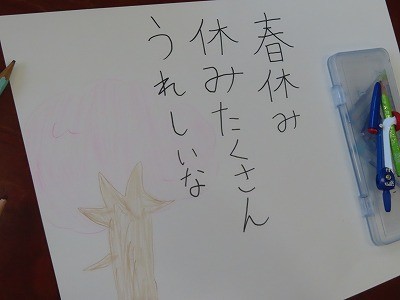 春休み
休みたくさん
うれしいな